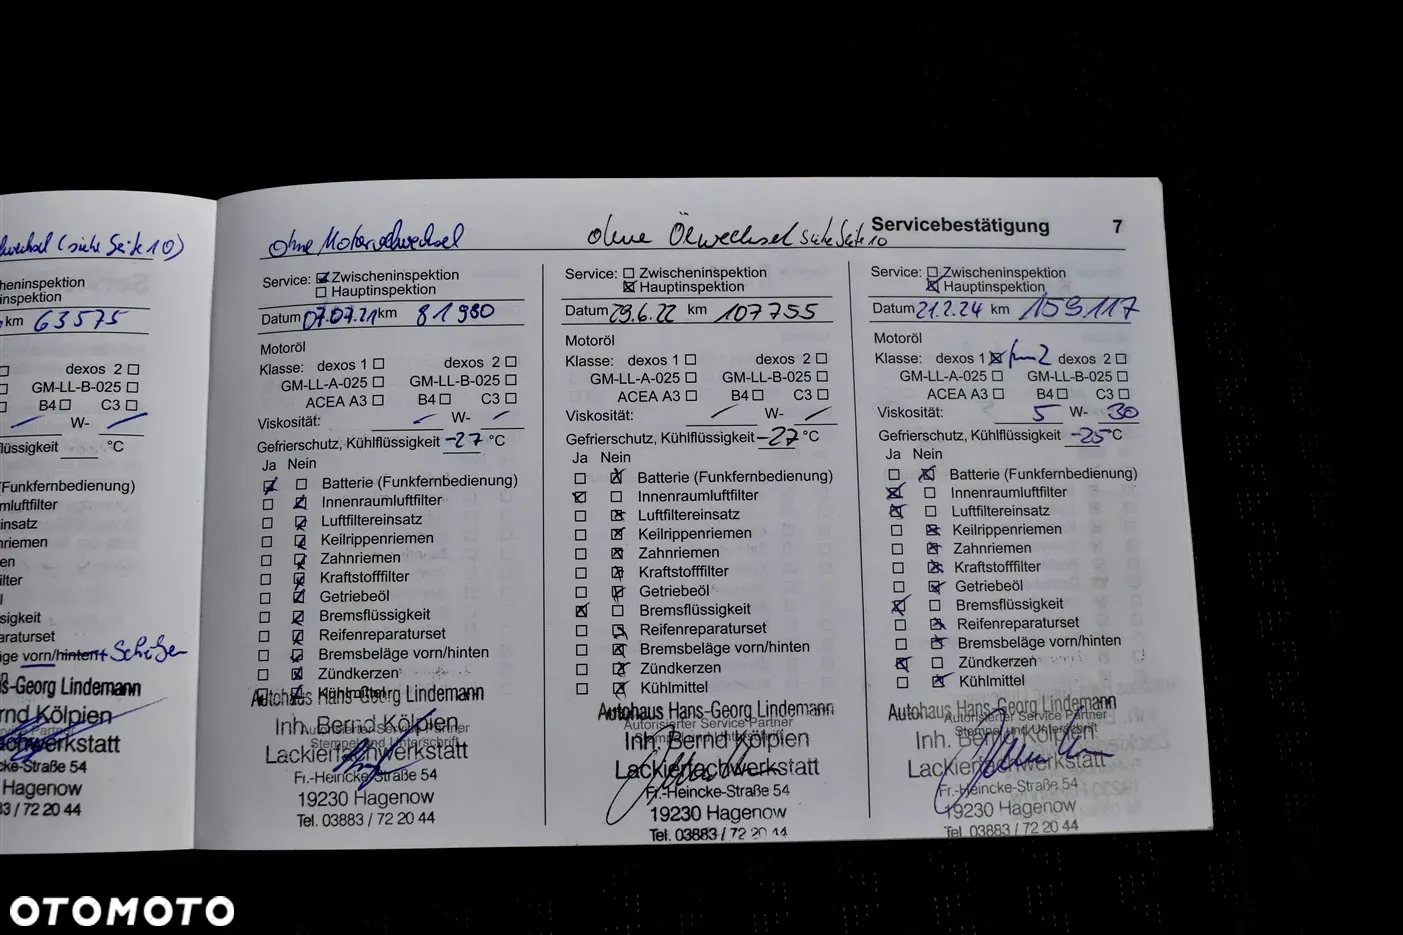 Servicebestätigung 7
ölwechsel (siehe Seite 10)
zheninspektion
inspektion
km 63575
dexos 2 ☐
GM-LL-B-025 ☐
B4 ☐ C3 ☐
W-
flüssigkeit °C
(Funkfernbedienung)
umluftfilter
insatz
nriemen
en
ilter
l
sigkeit
paraturset
läge vorn/hinten + Scheiben
s-Georg Lindemann
rnd Kölpien
achwerkstatt
cke-Straße 54
Hagenow
83 / 72 20 44
ohne Motorölwechsel
Service: ☒ Zwischeninspektion
☐ Hauptinspektion
Datum 07.07.21 km 81980
Motoröl
Klasse: dexos 1 ☐ dexos 2 ☐
GM-LL-A-025 ☐ GM-LL-B-025 ☐
ACEA A3 ☐ B4 ☐ C3 ☐
Viskosität: - W- -
Gefrierschutz, Kühlflüssigkeit -27 °C
Ja Nein
☒ ☐ Batterie (Funkfernbedienung)
☐ ☒ Innenraumluftfilter
☐ ☒ Luftfiltereinsatz
☐ ☒ Keilrippenriemen
☐ ☒ Zahnriemen
☐ ☒ Kraftstofffilter
☐ ☒ Getriebeöl
☐ ☒ Bremsflüssigkeit
☐ ☒ Reifenreparaturset
☐ ☒ Bremsbeläge vorn/hinten
☐ ☒ Zündkerzen
☐ ☒ Kühlmittel
Autohaus Hans-Georg Lindemann
Inh. Bernd Kölpien
Autorisierter Service Partner
Stempel und Unterschrift
Lackierfachwerkstatt
Fr.-Heincke-Straße 54
19230 Hagenow
Tel. 03883 / 72 20 44
ohne Ölwechsel siehe Seite 10
Service: ☐ Zwischeninspektion
☒ Hauptinspektion
Datum 29.6.22 km 107755
Motoröl
Klasse: dexos 1 ☐ dexos 2 ☐
GM-LL-A-025 ☐ GM-LL-B-025 ☐
ACEA A3 ☐ B4 ☐ C3 ☐
Viskosität: - W- -
Gefrierschutz, Kühlflüssigkeit -27 °C
Ja Nein
☐ ☒ Batterie (Funkfernbedienung)
☒ ☐ Innenraumluftfilter
☐ ☒ Luftfiltereinsatz
☐ ☒ Keilrippenriemen
☐ ☒ Zahnriemen
☐ ☒ Kraftstofffilter
☐ ☒ Getriebeöl
☒ ☐ Bremsflüssigkeit
☐ ☒ Reifenreparaturset
☐ ☒ Bremsbeläge vorn/hinten
☐ ☒ Zündkerzen
☐ ☒ Kühlmittel
Autohaus Hans-Georg Lindemann
Autorisierter Service Partner
Stempel und Unterschrift
Inh. Bernd Kölpien
Lackierfachwerkstatt
Fr.-Heincke-Straße 54
19230 Hagenow
Tel. 03883 / 72 20 44
Service: ☐ Zwischeninspektion
☒ Hauptinspektion
Datum 21.2.24 km 159117
Motoröl
Klasse: dexos 1 ☒ dexos 2 ☐
GM-LL-A-025 ☐ GM-LL-B-025 ☐
ACEA A3 ☐ B4 ☐ C3 ☐
Viskosität: 5 W- 30
Gefrierschutz, Kühlflüssigkeit -25 °C
Ja Nein
☐ ☒ Batterie (Funkfernbedienung)
☒ ☐ Innenraumluftfilter
☒ ☐ Luftfiltereinsatz
☐ ☒ Keilrippenriemen
☐ ☒ Zahnriemen
☐ ☒ Kraftstofffilter
☐ ☒ Getriebeöl
☒ ☐ Bremsflüssigkeit
☐ ☒ Reifenreparaturset
☐ ☒ Bremsbeläge vorn/hinten
☒ ☐ Zündkerzen
☐ ☒ Kühlmittel
Autohaus Hans-Georg Lindemann
Autorisierter Service Partner
Stempel und Unterschrift
Inh. Bernd Kölpien
Lackierfachwerkstatt
Fr.-Heincke-Straße 54
19230 Hagenow
Tel. 03883 / 72 20 44
OTOMOTO